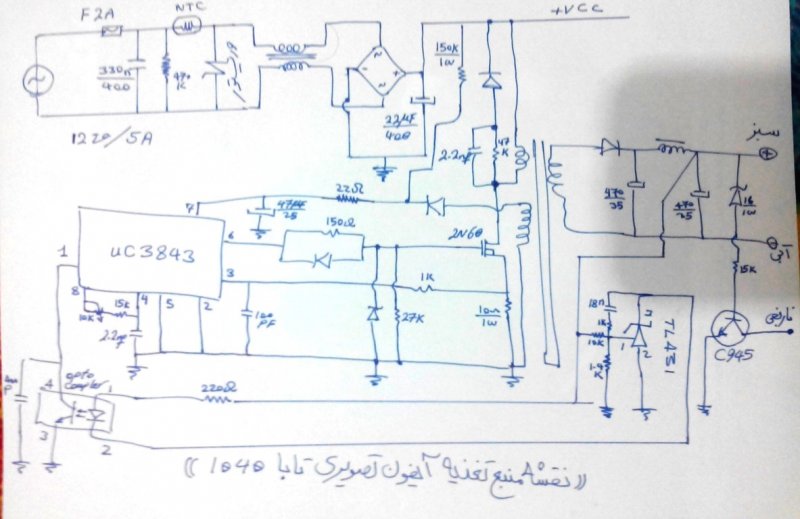 F 2A
NTC
+VCC
330n
400
470
K
22µF
400
150K
1W
1220/5A
2.2nF
47
K
22Ω
47µF
25
150Ω
2N60
uC3843
1
7
6
3
8
4
5
2
10K
15K
2.2n
100
PF
27K
1K
1W
470
35
470
25
16
1W
سبز
آبی
نارنجی
15K
C945
18n
1K
10K
TL431
1
2
220Ω
opto
coupler
4
1
3
2
((نقشه منبع تغذیه آیفون تصویری تابا 1040))